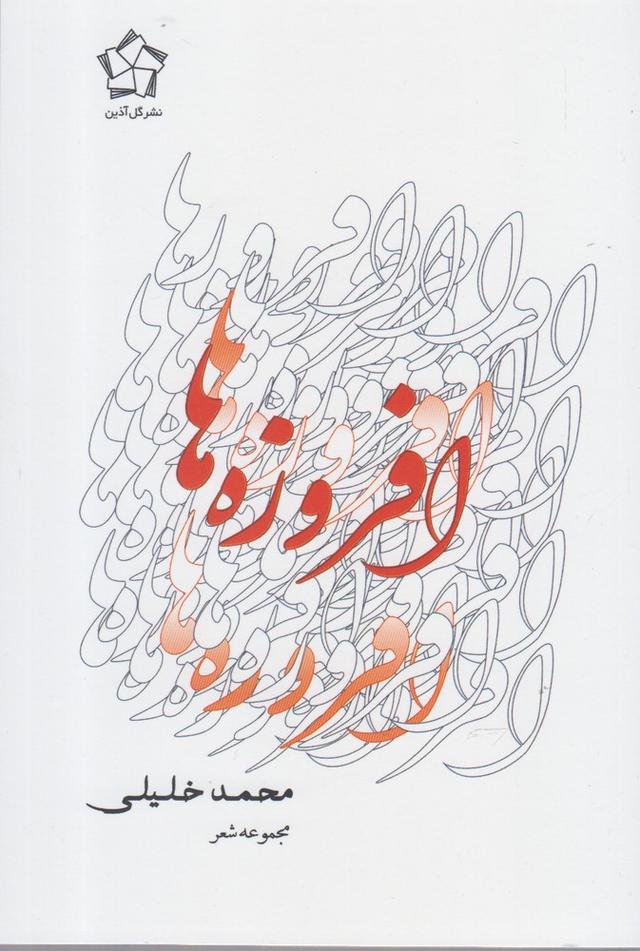 نشر گل آذین
افروزه ها
محمد خلیلی
مجموعه شعر